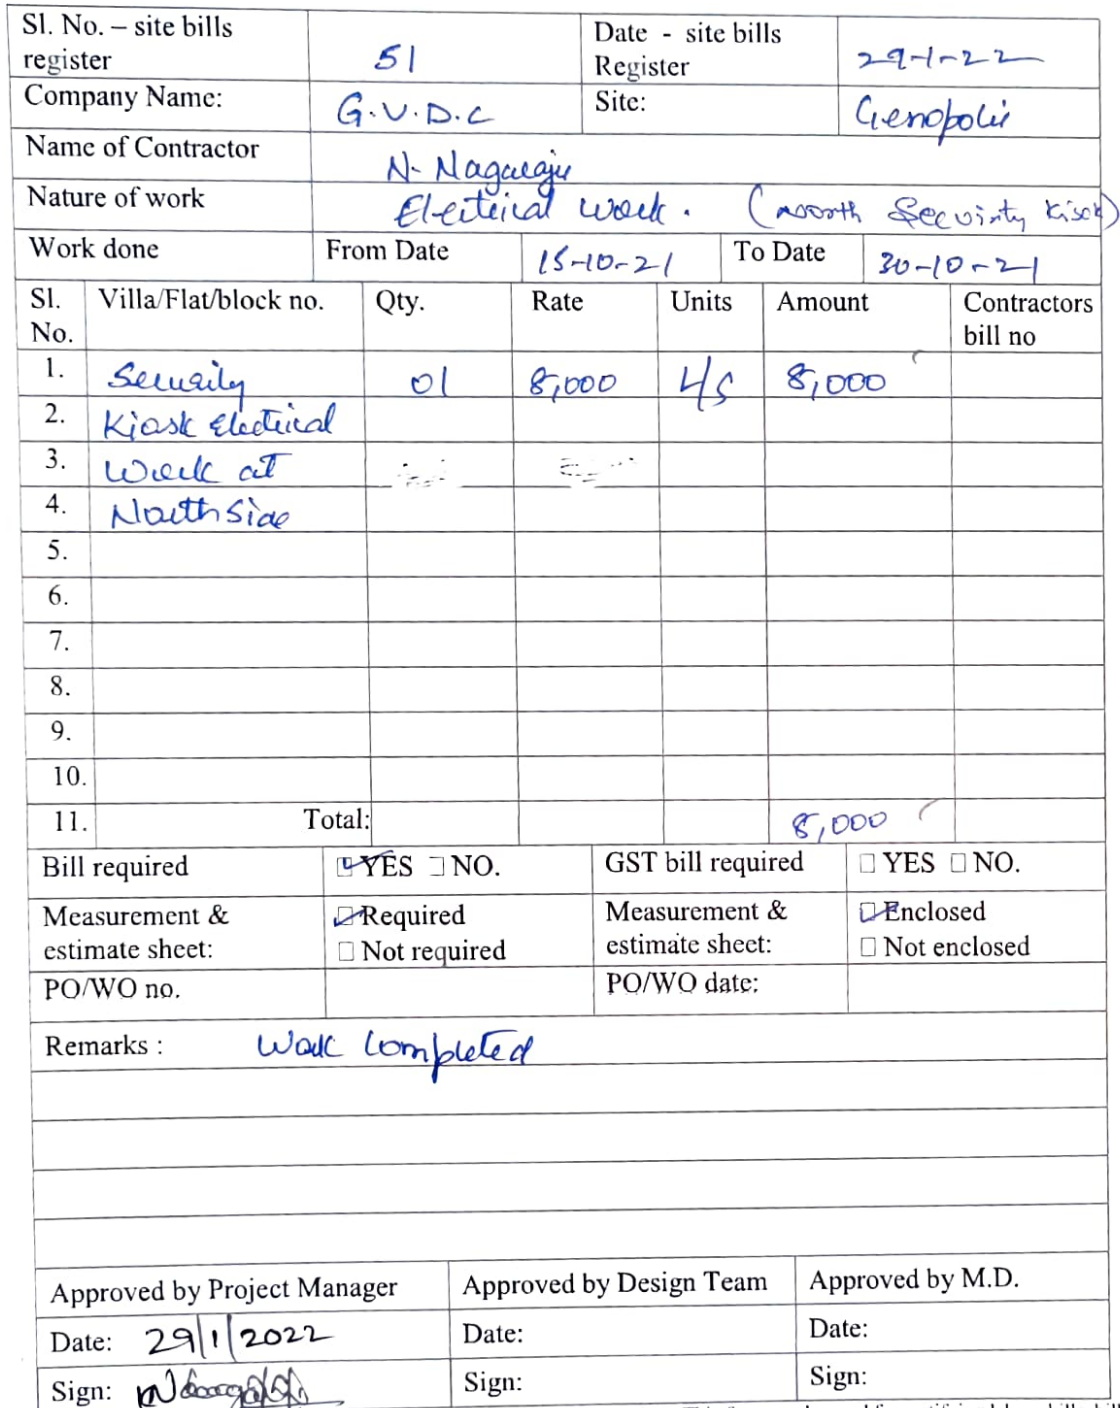 Sl. No. – site bills register 51 Date - site bills Register 29-1-22
Company Name: G.V.D.C Site: Genopolis
Name of Contractor N. Nagaraju
Nature of work Electrical work. (North Security Kisok)
Work done From Date 15-10-21 To Date 30-10-21
Sl. No. Villa/Flat/block no. Qty. Rate Units Amount Contractors bill no
1. Security 01 8,000 L/S 8,000
2. Kiosk Electrical
3. Work at
4. North Side
5.
6.
7.
8.
9.
10.
11. Total: 8,000
Bill required YES NO. GST bill required YES NO.
Measurement & estimate sheet: Required Not required Measurement & estimate sheet: Enclosed Not enclosed
PO/WO no. PO/WO date:
Remarks : Work Completed
Approved by Project Manager Approved by Design Team Approved by M.D.
Date: 29/1/2022 Date: Date:
Sign: Sign: Sign: